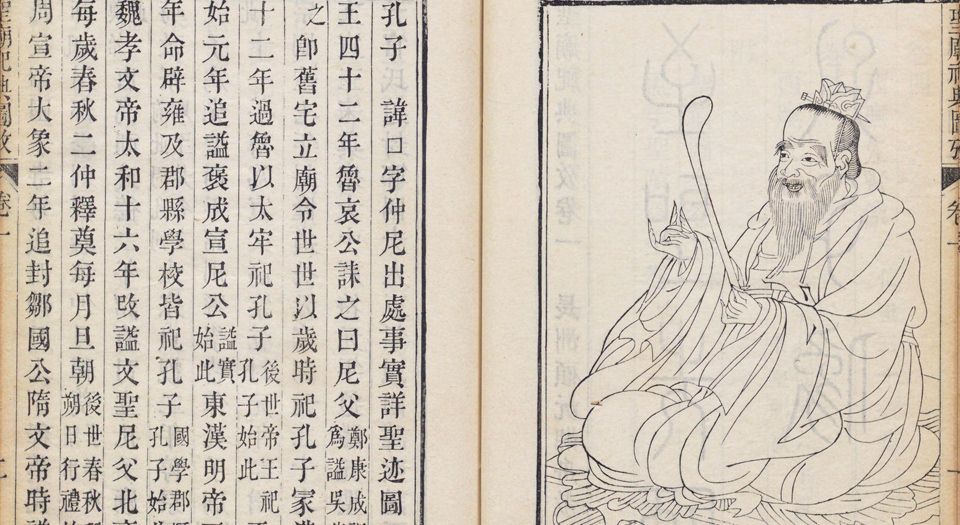 聖廟祀典圖攷
卷一
孔子諱口字仲尼出處事實詳聖迹圖
王四十二年魯哀公誄之曰尼父鄭康成爲謚吳
之卽舊宅立廟令世世以歲時祀孔子冢
十二年過魯以太牢祀孔子後世帝王祀孔子始此
始元年追謚褒成宣尼公謚實始此東漢明帝
年命辟雍及郡縣學校皆祀孔子國學郡孔子始
魏孝文帝太和十六年改謚文聖尼父北
每歲春秋二仲釋奠每月旦朝後世春秋朔日行禮
周宣帝大象二年追封鄒國公隋文帝時
聖廟祀典圖攷
卷一